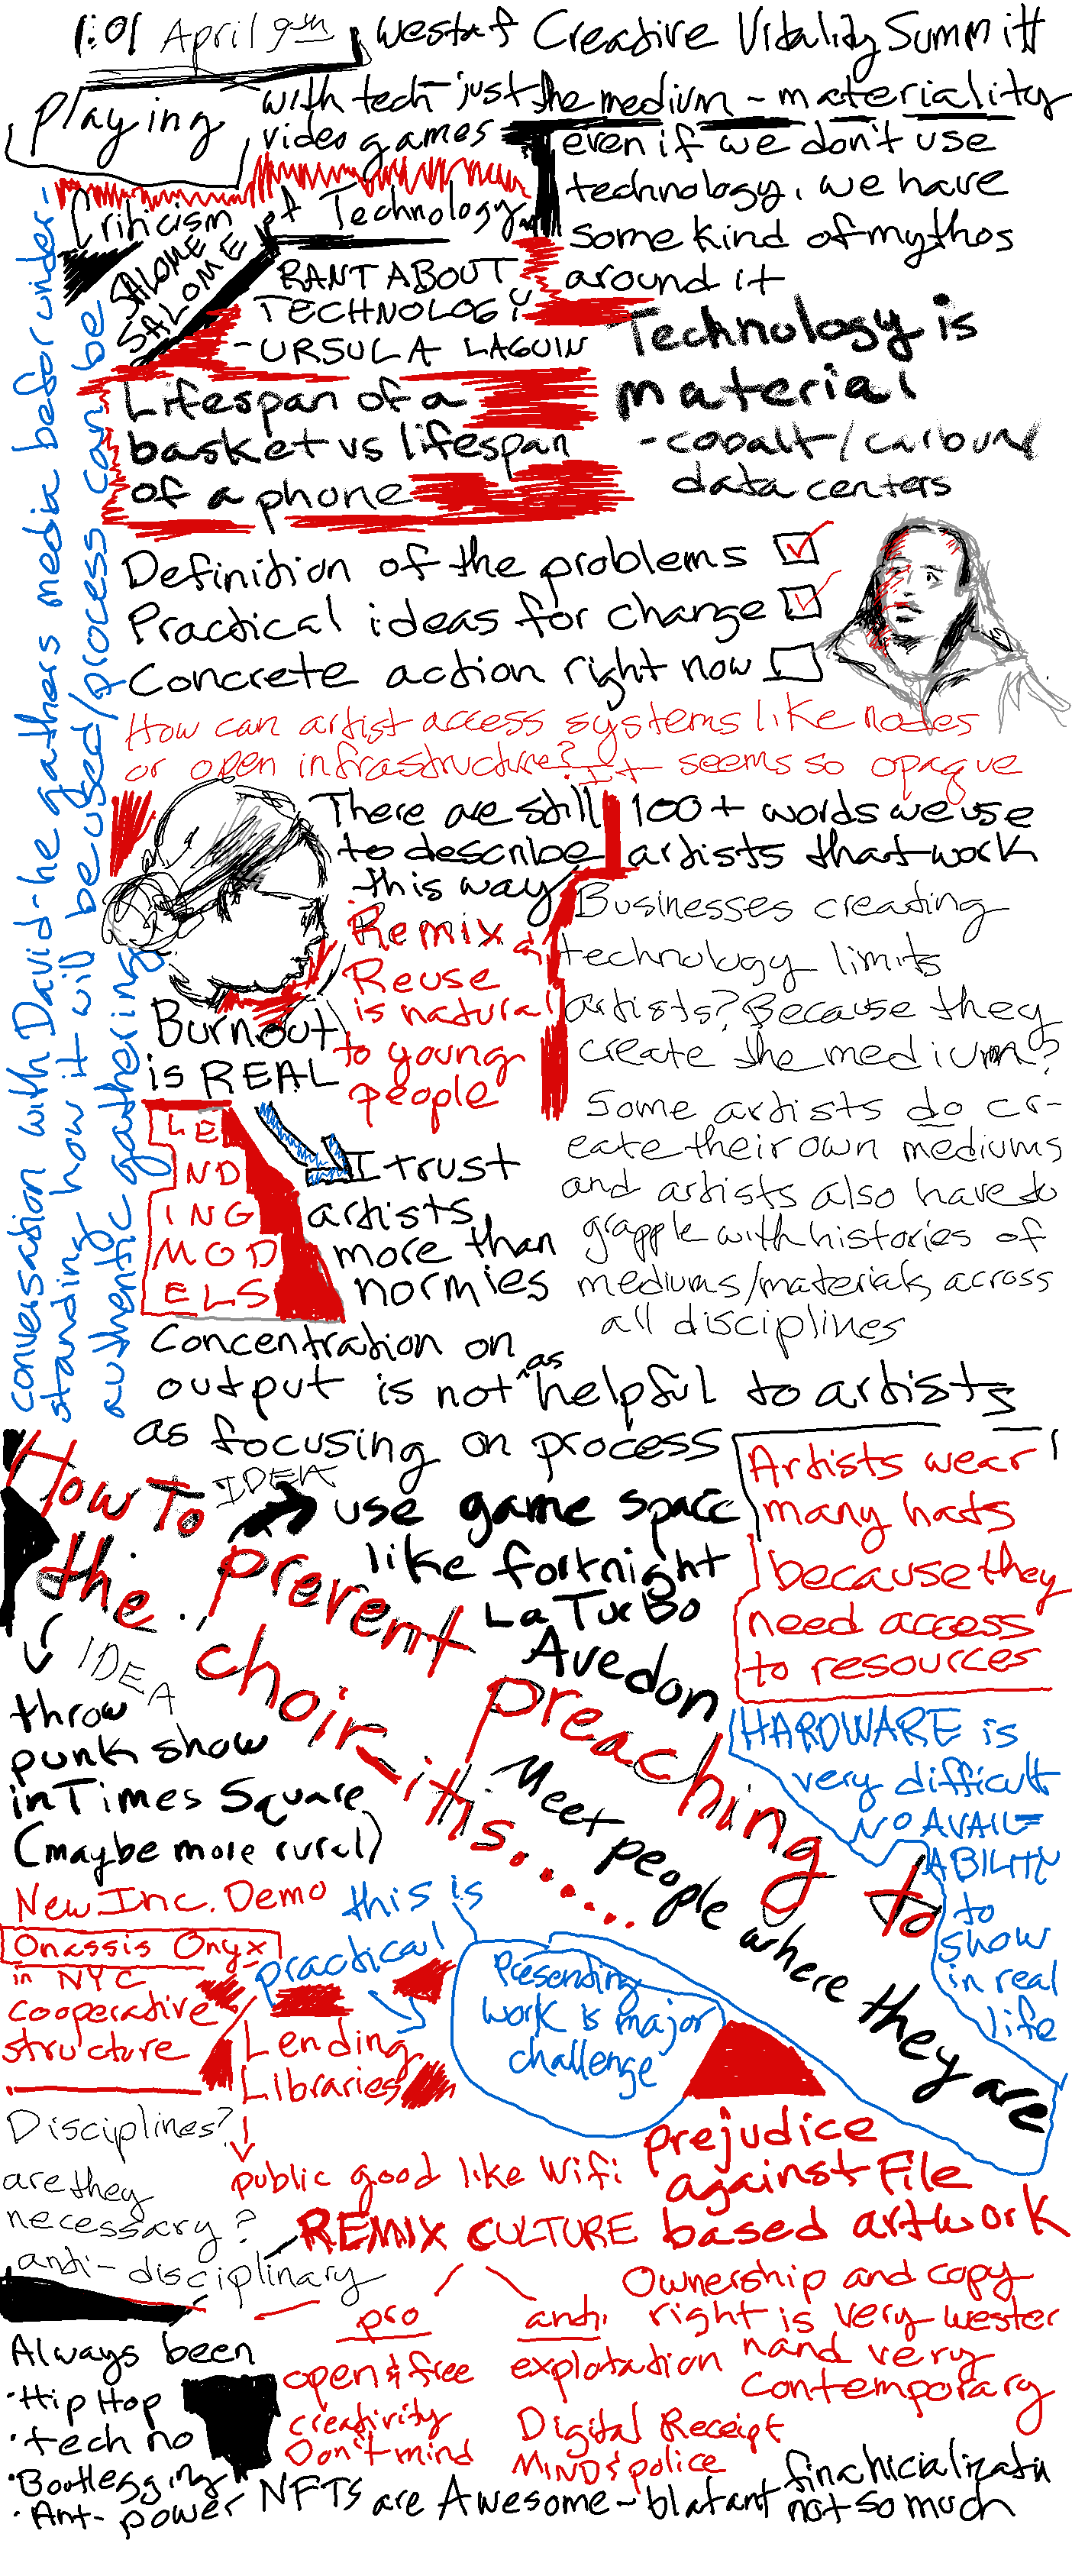 1:01 April 9th Westaf Creative Vitality Summitt
Playing
with tech - just the medium - materiality
video games
even if we don't use
technology, we have
some kind of mythos
around it
Criticism of Technology
SALOME
SALOME
RANT ABOUT
TECHNOLOGY
- URSULA LAGUIN
Technology is
material
- cobalt/carbon/
data centers
Lifespan of a
basket vs lifespan
of a phone
Definition of the problems
Practical ideas for change
Concrete action right now
How can artist access systems like nodes
or open infrastructure? It seems so opaque
conversation with David - he gathers media before under-
standing how it will be used/process can be
authentic gathering
There are still 100+ words we use
to describe artists that work
this way
Remix &
Reuse
is natural
to young
people
Burnout
is REAL
Businesses creating
technology limits
artists? Because they
create the medium?
Some artists do cr-
eate their own mediums
and artists also have to
grapple with histories of
mediums/materials across
all disciplines
LE
ND
ING
MOD
ELS
I trust
artists
more than
normies
Concentration on
output is not as helpful to artists
as focusing on process
How To prevent preaching to
the choir - itis.....
IDEA
use game space
like fortnight
LaTurbo
Avedon
Artists wear
many hats
because they
need access
to resources
IDEA
throw
punk show
in Times Square
(maybe more rural)
Meet people where they are
HARDWARE is
very difficult
NO AVAIL=
ABILITY
to
show
in real
life
New Inc. Demo
Onassis Onyx
in NYC
cooperative
structure
this is
practical
Lending
Libraries
public good like Wifi
Presending
work is major
challenge
prejudice
against File
based artwork
Disciplines?
are they
necessary?
anti-disciplinary
REMIX CULTURE
pro
open & free
creativity
Don't mind
anti
explotation
Digital Receipt
MINDS police
Ownership and copy
right is very wester
nand very
contemporary
Always been
·Hip Hop
·tech no
·Bootlegging
·Ant- power
NFTS are Awesome - blatant finchicializatin
not so much